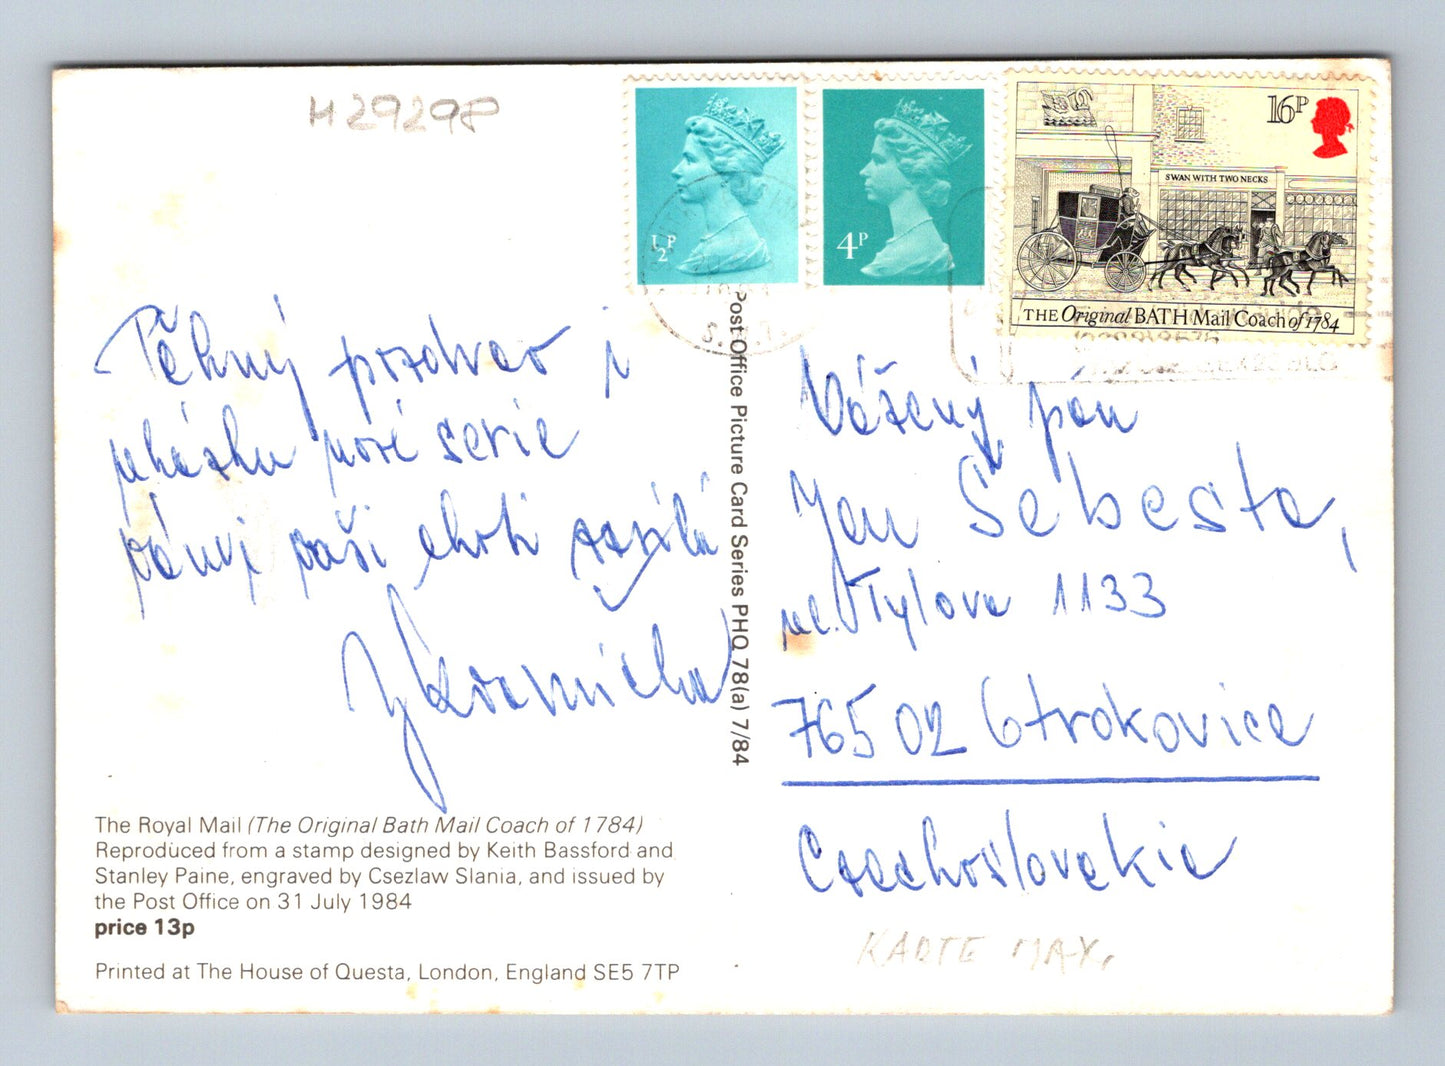 H29298
½P
4P
16P
SWAN WITH TWO NECKS
THE Original BATH Mail Coach of 1784
Pěkný pozdrav i
ukázku nové serie
Vaší choti
Post Office Picture Card Series PHQ 78(a) 7/84
Vážený pan
Jan Šebesta,
ul. Tylova 1133
76502 Otrokovice
Czechoslovakia
The Royal Mail (The Original Bath Mail Coach of 1784)
Reproduced from a stamp designed by Keith Bassford and
Stanley Paine, engraved by Csezlaw Slania, and issued by
the Post Office on 31 July 1984
price 13p
Printed at The House of Questa, London, England SE5 7TP
KARTE MAX.